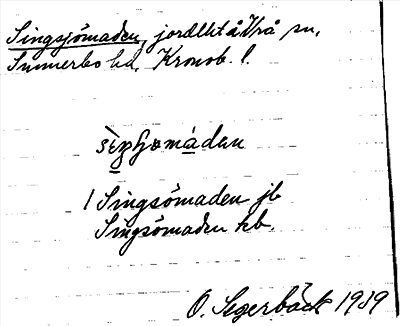 Singsjömaden, jordlht å Vrå sn,
Sunnerbo hd, Kronob. l.
Singsömaden jb
Singsömaden kb.
O. Segerbäck 1939